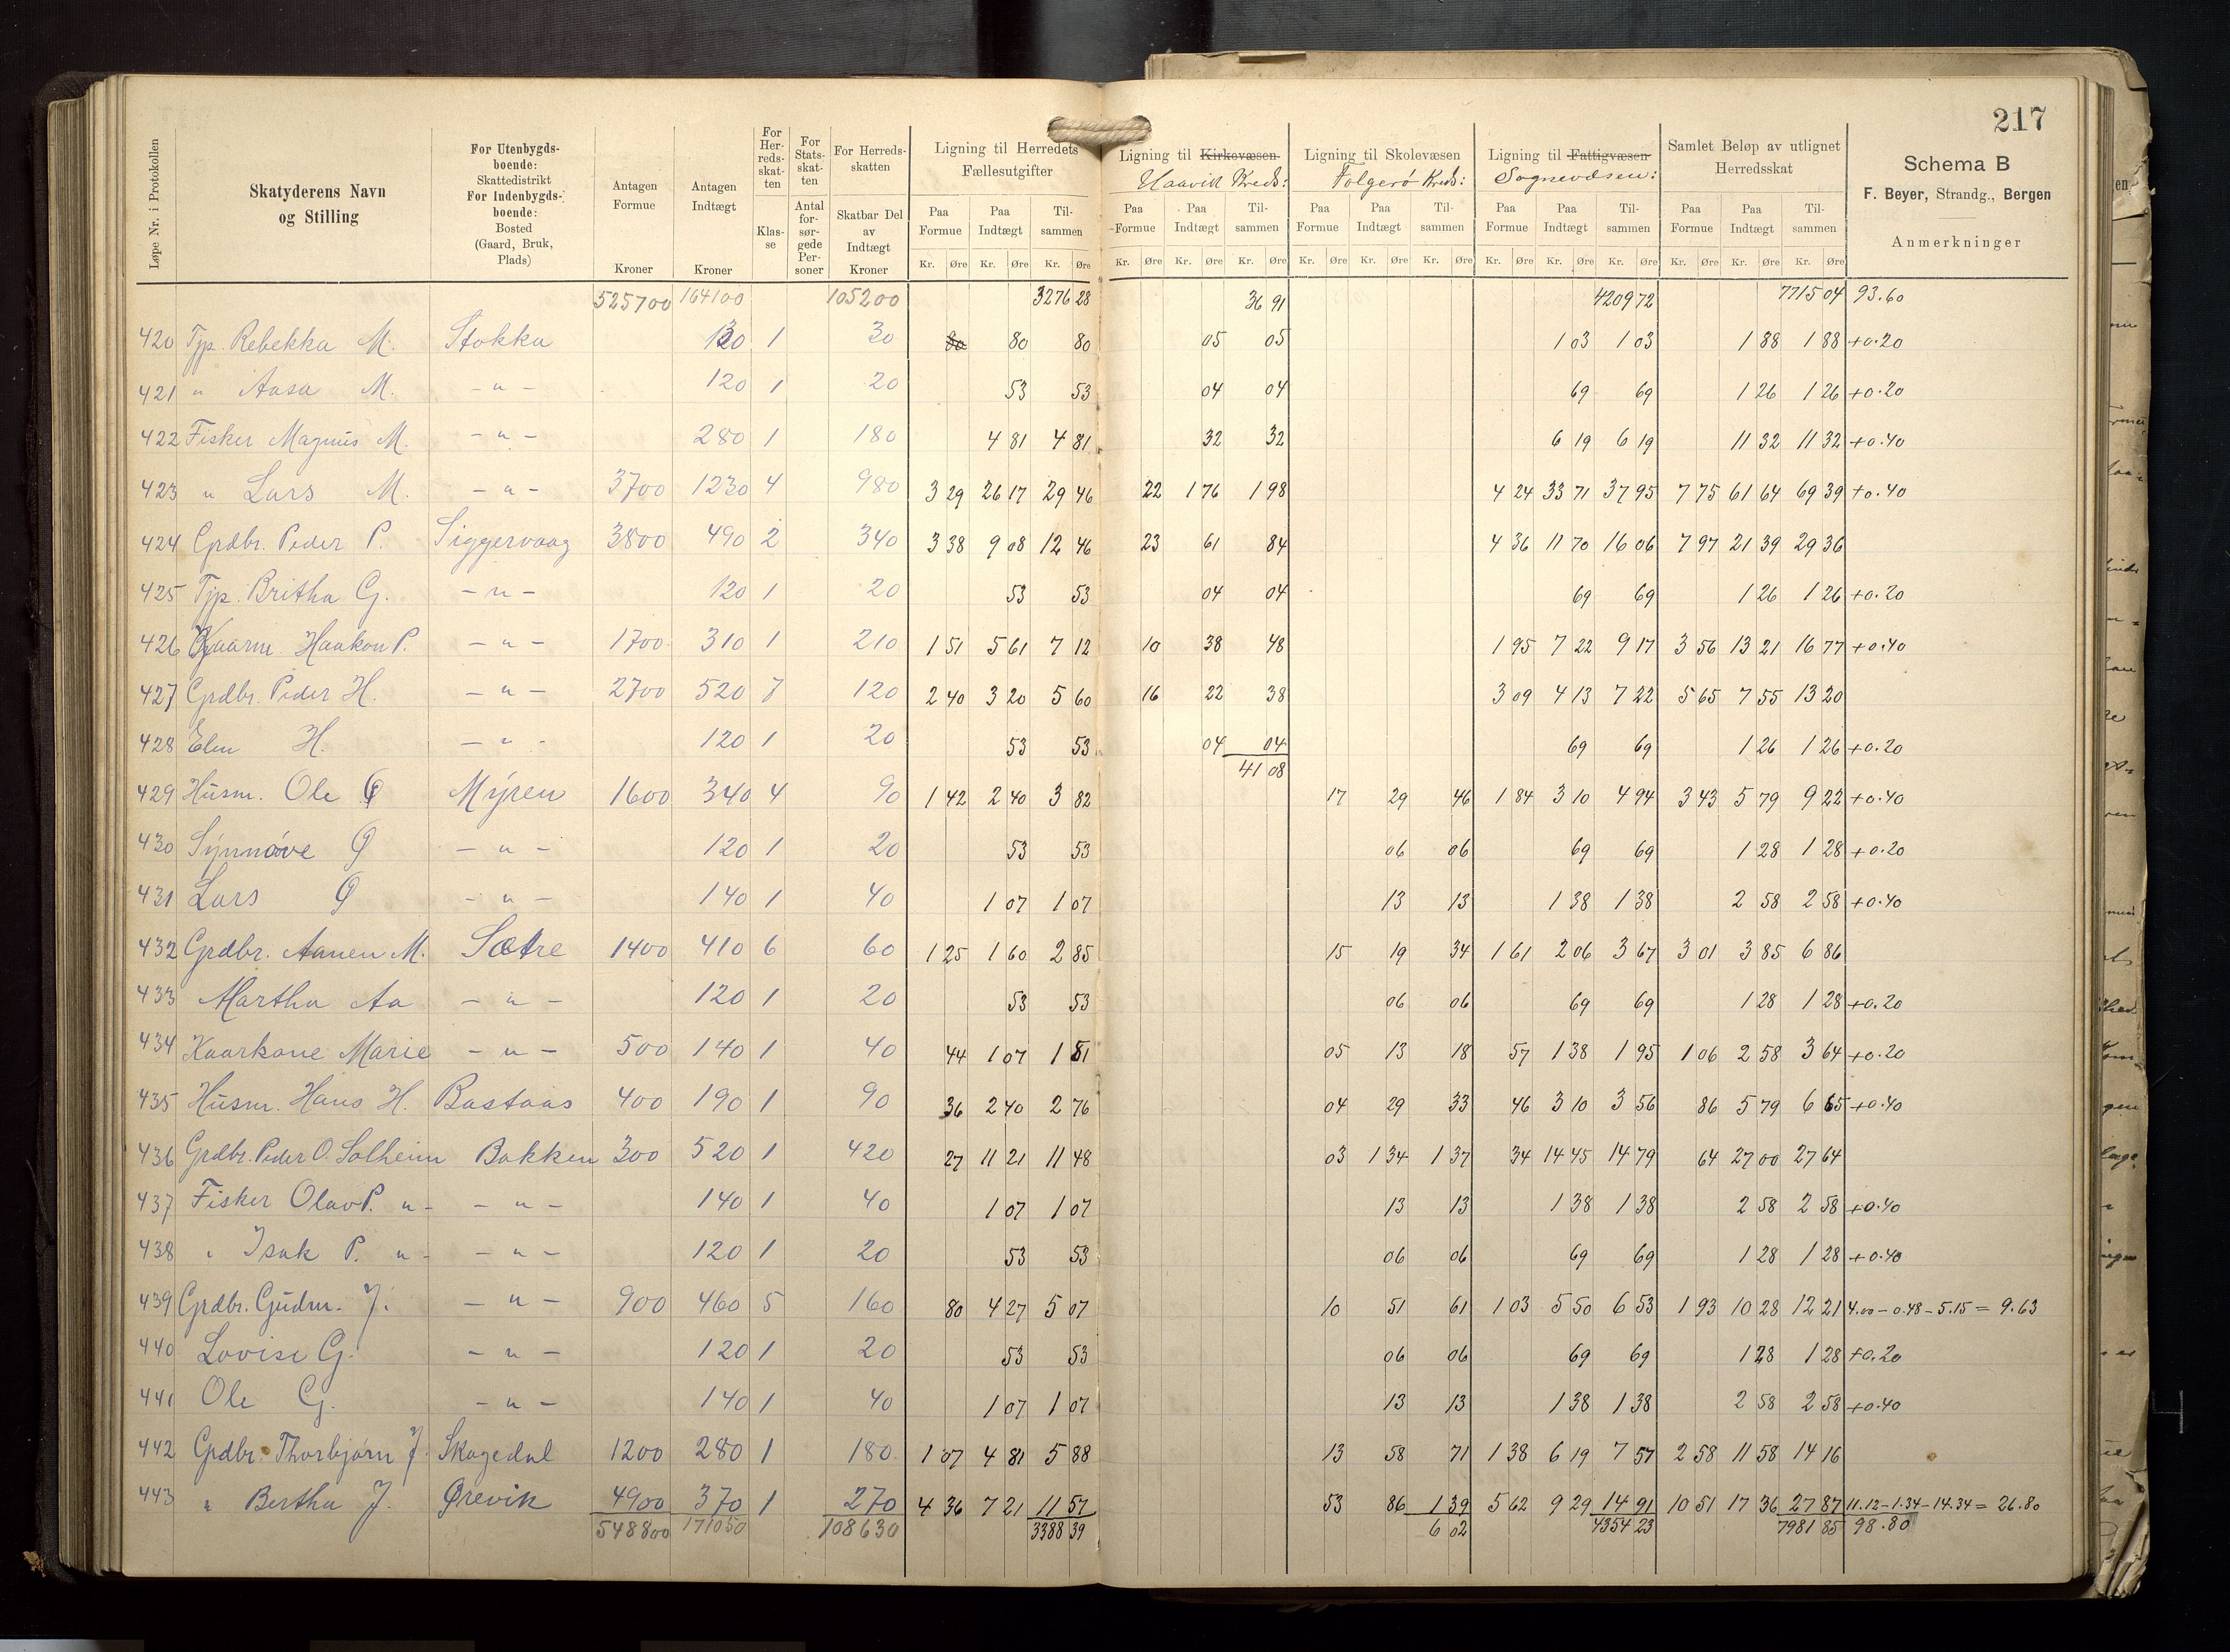 217
Løpe Nr. i Protokollen
Skatyderens Navn og Stilling
For Utenbygdsboende: Skattedistrikt For Indenbygdsboende: Bosted (Gaard, Bruk, Plads)
Antagen Formue Kroner
Antagen Indtægt Kroner
For Herredsskatten Klasse
For Statsskatten Antal forsørgede Personer
For Herredsskatten Skatbar Del av Indtægt Kroner
Ligning til Herredets Fællesutgifter
Ligning til Kirkevæsen Haavik Kreds:
Ligning til Skolevæsen Folgerø Kreds:
Ligning til Fattigvæsen Sognevæsen:
Samlet Beløp av utlignet Herredsskat
Schema B
F. Beyer, Strandg., Bergen
Anmerkninger
Paa Formue Paa Indtægt Tilsammen Paa Formue Paa Indtægt Tilsammen Paa Formue Paa Indtægt Tilsammen Paa Formue Paa Indtægt Tilsammen Paa Formue Paa Indtægt Tilsammen
Kr. Øre Kr. Øre Kr. Øre Kr. Øre Kr. Øre Kr. Øre Kr. Øre Kr. Øre Kr. Øre Kr. Øre Kr. Øre Kr. Øre Kr. Øre Kr. Øre Kr. Øre
525700 164100 105200 3276 28 36 91 4209 72 7715 04 93.60
420 Tjp. Rebekka M. Stokka 130 1 30 80 80 80 05 05 1 03 1 03 1 88 1 88 +0.20
421 " Aasa M. - " - 120 1 20 53 53 04 04 69 69 1 26 1 26 +0.20
422 Fisker Magnus M. - " - 280 1 180 4 81 4 81 32 32 6 19 6 19 11 32 11 32 +0.40
423 " Lars M. - " - 3700 1230 4 980 3 29 26 17 29 46 22 1 76 1 98 4 24 33 71 37 95 7 75 61 64 69 39 +0.40
424 Grdbr. Peder P. Siggervaag 3800 490 2 340 3 38 9 08 12 46 23 61 84 4 36 11 70 16 06 7 97 21 39 29 36
425 Tjp. Britha G. - " - 120 1 20 53 53 04 04 69 69 1 26 1 26 +0.20
426 Kaarm. Haakon P. - " - 1700 310 1 210 1 51 5 61 7 12 10 38 48 1 95 7 22 9 17 3 56 13 21 16 77 +0.40
427 Grdbr. Peder H. - " - 2700 520 7 120 2 40 3 20 5 60 16 22 38 3 09 4 13 7 22 5 65 7 55 13 20
428 Elen H. - " - 120 1 20 53 53 04 04 69 69 1 26 1 26 +0.20
41 08
429 Husm. Ole Q Myren 1600 340 4 90 1 42 2 40 3 82 17 29 46 1 84 3 10 4 94 3 43 5 79 9 22 +0.40
430 Synnøve - " - 120 1 20 53 53 06 06 69 69 1 28 1 28 +0.20
431 Lars - " - 140 1 40 1 07 1 07 13 13 1 38 1 38 2 58 2 58 +0.40
432 Grdbr. Aamen M. Sætre 1400 410 6 60 1 25 1 60 2 85 15 19 34 1 61 2 06 3 67 3 01 3 85 6 86
433 Martha Aa - " - 120 1 20 53 53 06 06 69 69 1 28 1 28 +0.20
434 Kaarkone Marie - " - 500 140 1 40 44 1 07 1 51 05 13 18 57 1 38 1 95 1 06 2 58 3 64 +0.20
435 Husm. Hans H. Bastaas 400 190 1 90 36 2 40 2 76 04 29 33 46 3 10 3 56 86 5 79 6 65 +0.40
436 Grdbr. Peder O. Solheim Bakken 300 520 1 420 27 11 21 11 48 03 1 34 1 37 34 14 45 14 79 64 27 00 27 64
437 Fisker Olav P. " - - " - 140 1 40 1 07 1 07 13 13 1 38 1 38 2 58 2 58 +0.40
438 " Isak P. " - - " - 120 1 20 53 53 06 06 69 69 1 28 1 28 +0.40
439 Grdbr. Gudm. J. - " - 900 460 5 160 80 4 27 5 07 10 51 61 1 03 5 50 6 53 1 93 10 28 12 21 4.00 - 0.48 - 5.15 = 9.63
440 Lovise G. - " - 120 1 20 53 53 06 06 69 69 1 28 1 28 +0.20
441 Ole G. - " - 140 1 40 1 07 1 07 13 13 1 38 1 38 2 58 2 58 +0.40
442 Grdbr. Thorbjørn J. Skagedal 1200 280 1 180 1 07 4 81 5 88 13 58 71 1 38 6 19 7 57 2 58 11 58 14 16
443 " Bertha J. Ørevik 4900 370 1 270 4 36 7 21 11 57 53 86 1 39 5 62 9 29 14 91 10 51 17 36 27 87 11.12 - 1.34 - 14.34 = 26.80
548800 171050 108630 3388 39 6 02 4354 23 7981 85 98.80